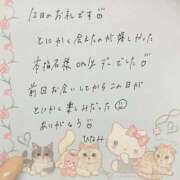 12日のお礼です
とにかく会えたのが嬉しかった
本指名様 onlyデーでした
前回お会いしてからこの日が
とにかく楽しみだった
ありがとう
ひなみ